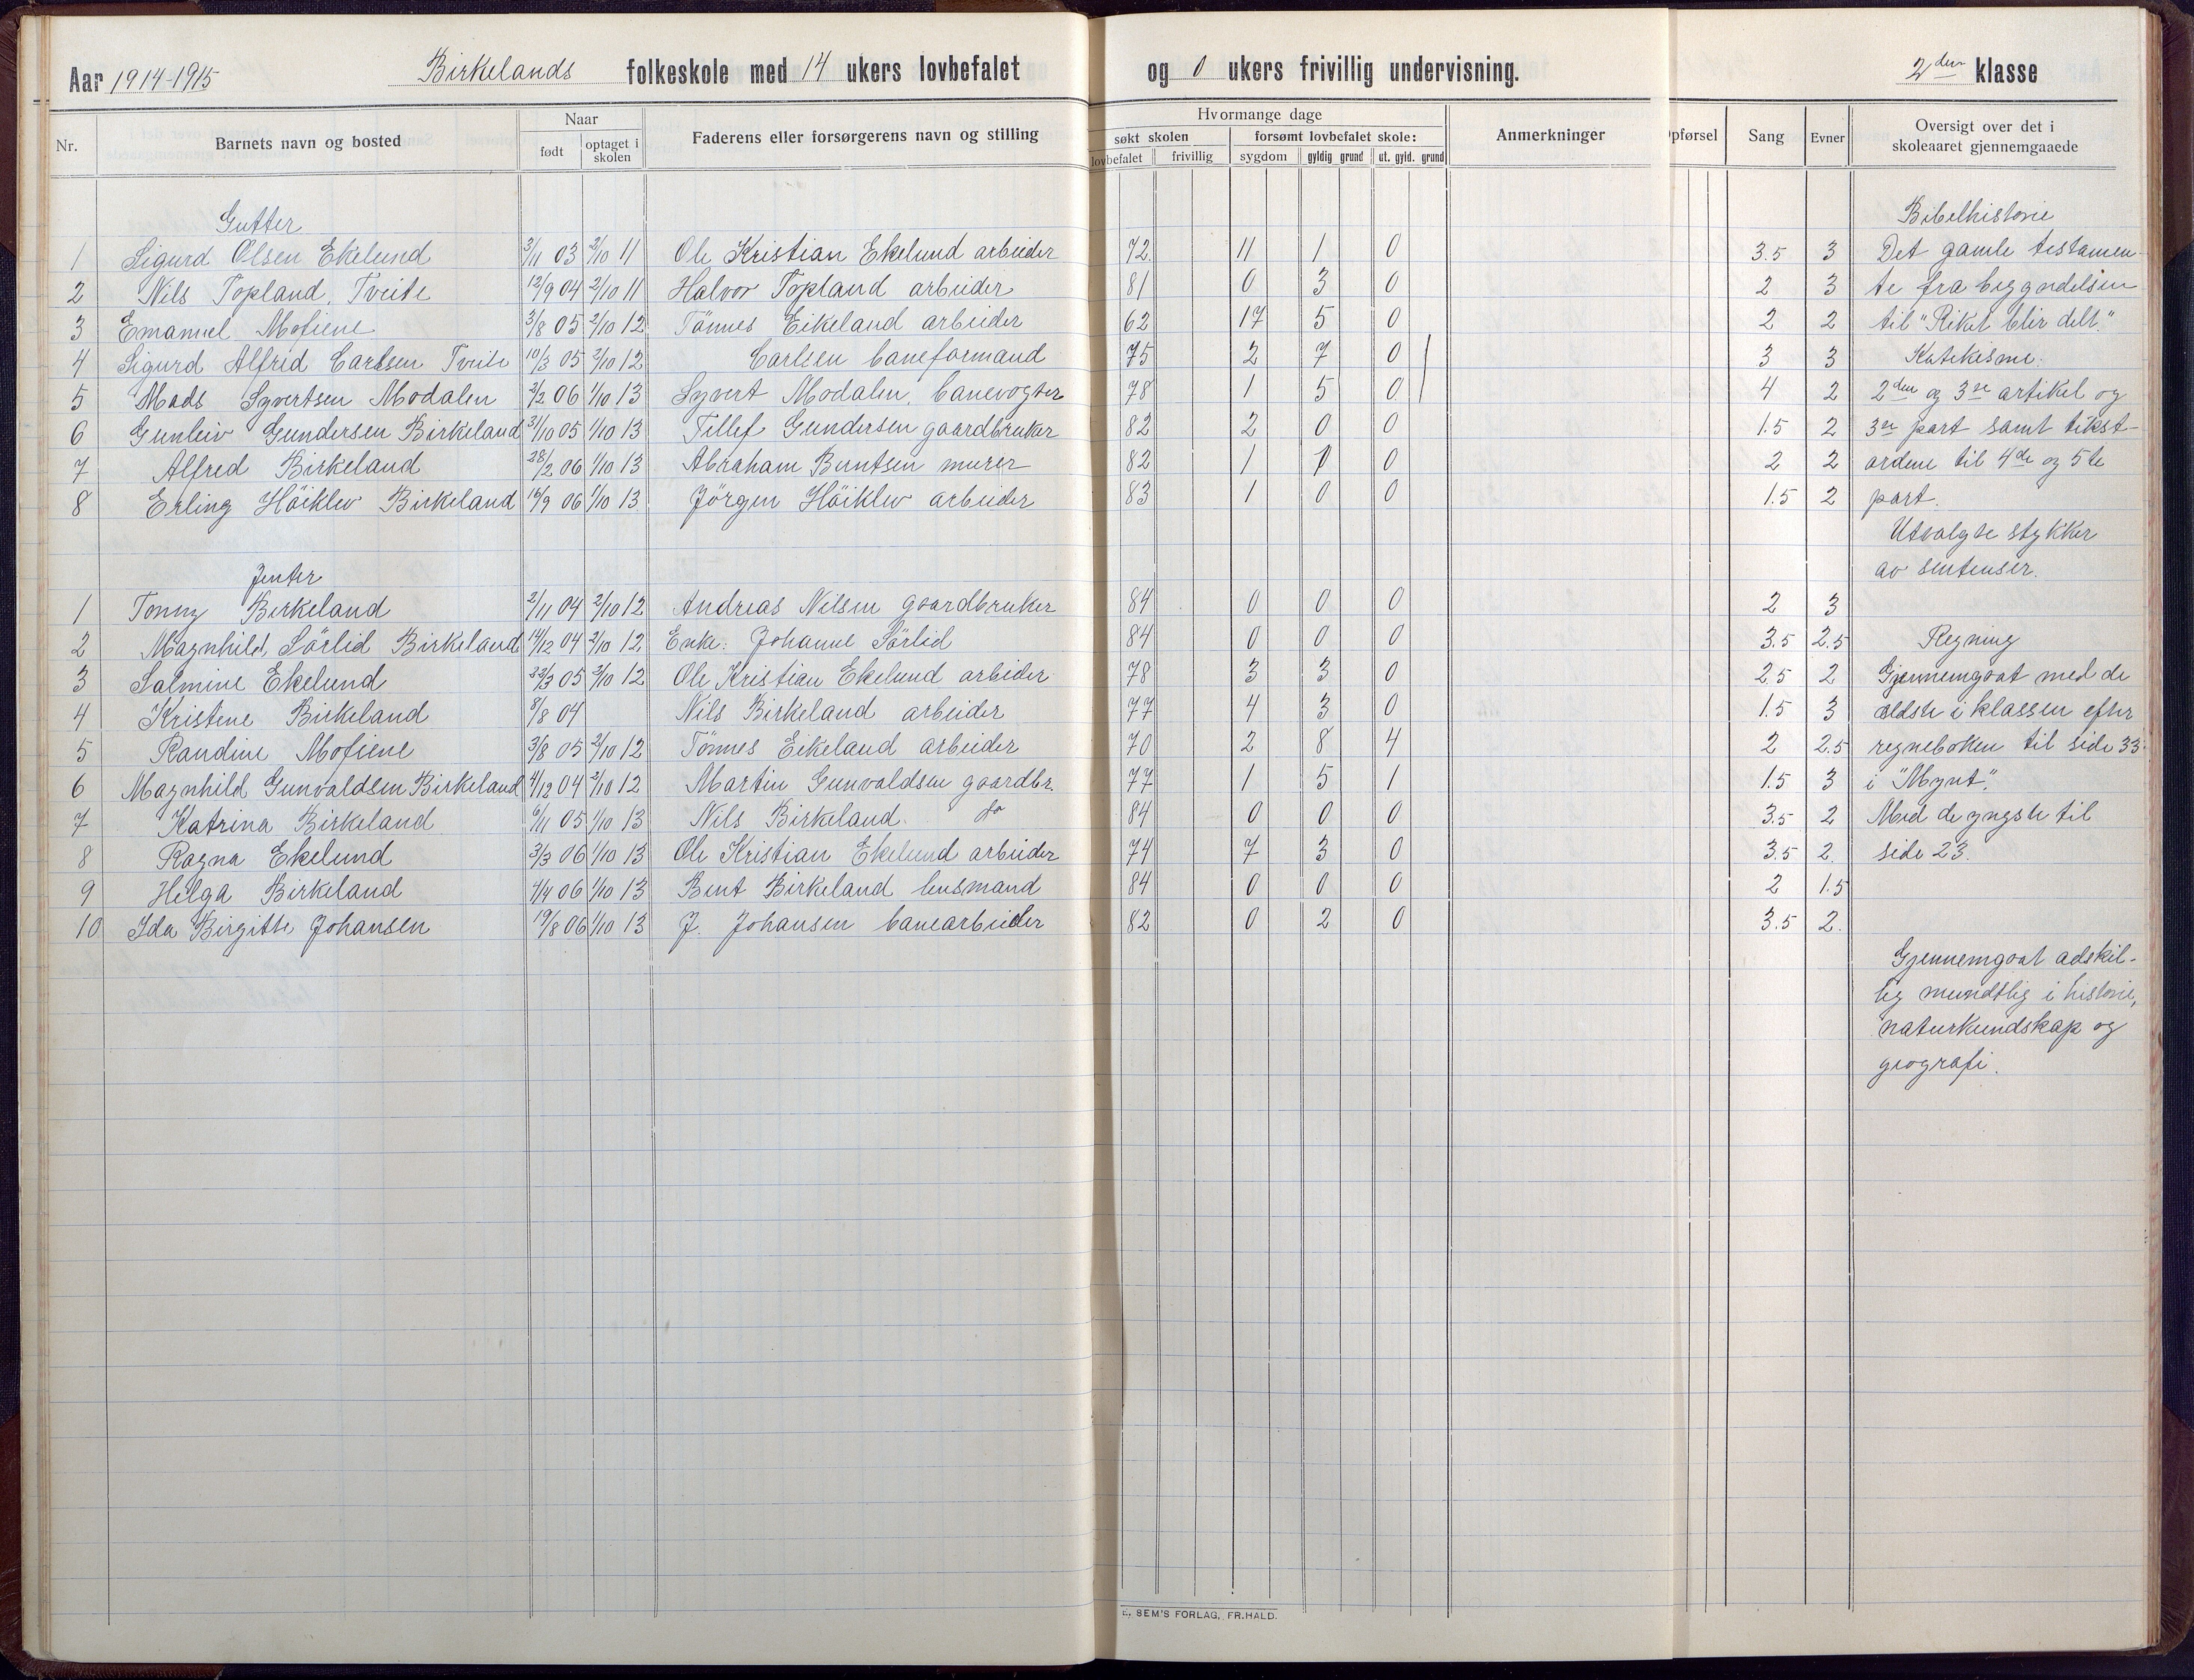 Aar 1914-1915 Birkelands folkeskole med 14 ukers lovbefalet og 0 ukers frivillig undervisning. 2den klasse
Nr. Barnets navn og bosted Naar født optaget i skolen Faderens eller forsørgerens navn og stilling Hvormange dage søkt skolen lovbefalet frivillig forsømt lovbefalet skole: sygdom gyldig grund ut. gyld. grund Anmerkninger pførsel Sang Evner Oversigt over det i skoleaaret gjennemgaaede
Gutter Bibelhistorie
1 Sigurd Olsen Ekelund 3/11 03 2/10 11 Ole Kristian Ekelund arbeider 72 11 1 0 3.5 3 Det gamle testamen-
2 Nils Topland, Tveite 12/9 04 2/10 11 Halvor Topland arbeider 81 0 3 0 2 3 te fra begyndelsen
3 Emanuel Mofiene 3/8 05 2/10 12 Tönnes Eikeland arbeider 62 17 5 0 2 2 til "Riket blir delt."
4 Sigurd Alfred Carlsen Tveite 10/3 05 2/10 12 Carlsen baneformand 75 2 7 0 3 3 Katekisme.
5 Mads Syvertsen Modalen 2/2 06 1/10 13 Syvert Modalen, banevogter 78 1 5 0 4 2 2den og 3re artikel og
6 Gunleiv Gundersen Birkeland 31/10 05 1/10 13 Tellef Gundersen gaardbruker 82 2 0 0 1.5 2 3re part samt tekst-
7 Alfred Birkeland 28/2 06 1/10 13 Abraham Berntsen murer 82 1 1 0 2 2 ordene til 4de og 5te
8 Erling Höiklev Birkeland 16/9 06 1/10 13 Jörgen Höiklev arbeider 83 1 0 0 1.5 2 part.
Utvalgte stykker
Jenter av sentenser.
1 Tonny Birkeland 2/11 04 2/10 12 Andreas Nilsen gaardbruker 84 0 0 0 2 3
2 Magnhild Sörlid Birkeland 14/12 04 2/10 12 Enke: Johanne Sörlid 84 0 0 0 3.5 2.5 Regning
3 Salmine Ekelund 05 2/10 12 Ole Kristian Ekelund arbeider 78 3 3 0 2.5 2 Gjennemgaat med de
4 Kristene Birkeland 8/8 04 Nils Birkeland arbeider 77 4 3 0 1.5 3 ældste i klassen efter
5 Randine Mofiene 3/8 05 2/10 12 Tönnes Eikeland arbeider 70 2 8 4 2 2.5 regneboken til side 33
6 Magnhild Gunvaldsen Birkeland 4/12 04 2/10 12 Martin Gunvaldsen gaardbr. 77 1 5 1 1.5 3 i "Mynt".
7 Katrina Birkeland 6/11 05 1/10 13 Nils Birkeland. do 84 0 0 0 3.5 2 Med de yngste til
8 Ragna Ekelund 3/3 06 1/10 13 Ole Kristian Ekelund arbeider 74 7 3 0 3.5 2. side 23.
9 Helga Birkeland 7/4 06 1/10 13 Bent Birkeland lensmand 84 0 0 0 2 1.5
10 Ida Birgitte Johansen 19/8 06 1/10 13 J. Johansen banearbeider 82 0 2 0 3.5 2.
Gjennemgaat adskil-
lig mundtlig i historie,
naturkundskap og
geografi.
SEM'S FORLAG, FR.HALD.